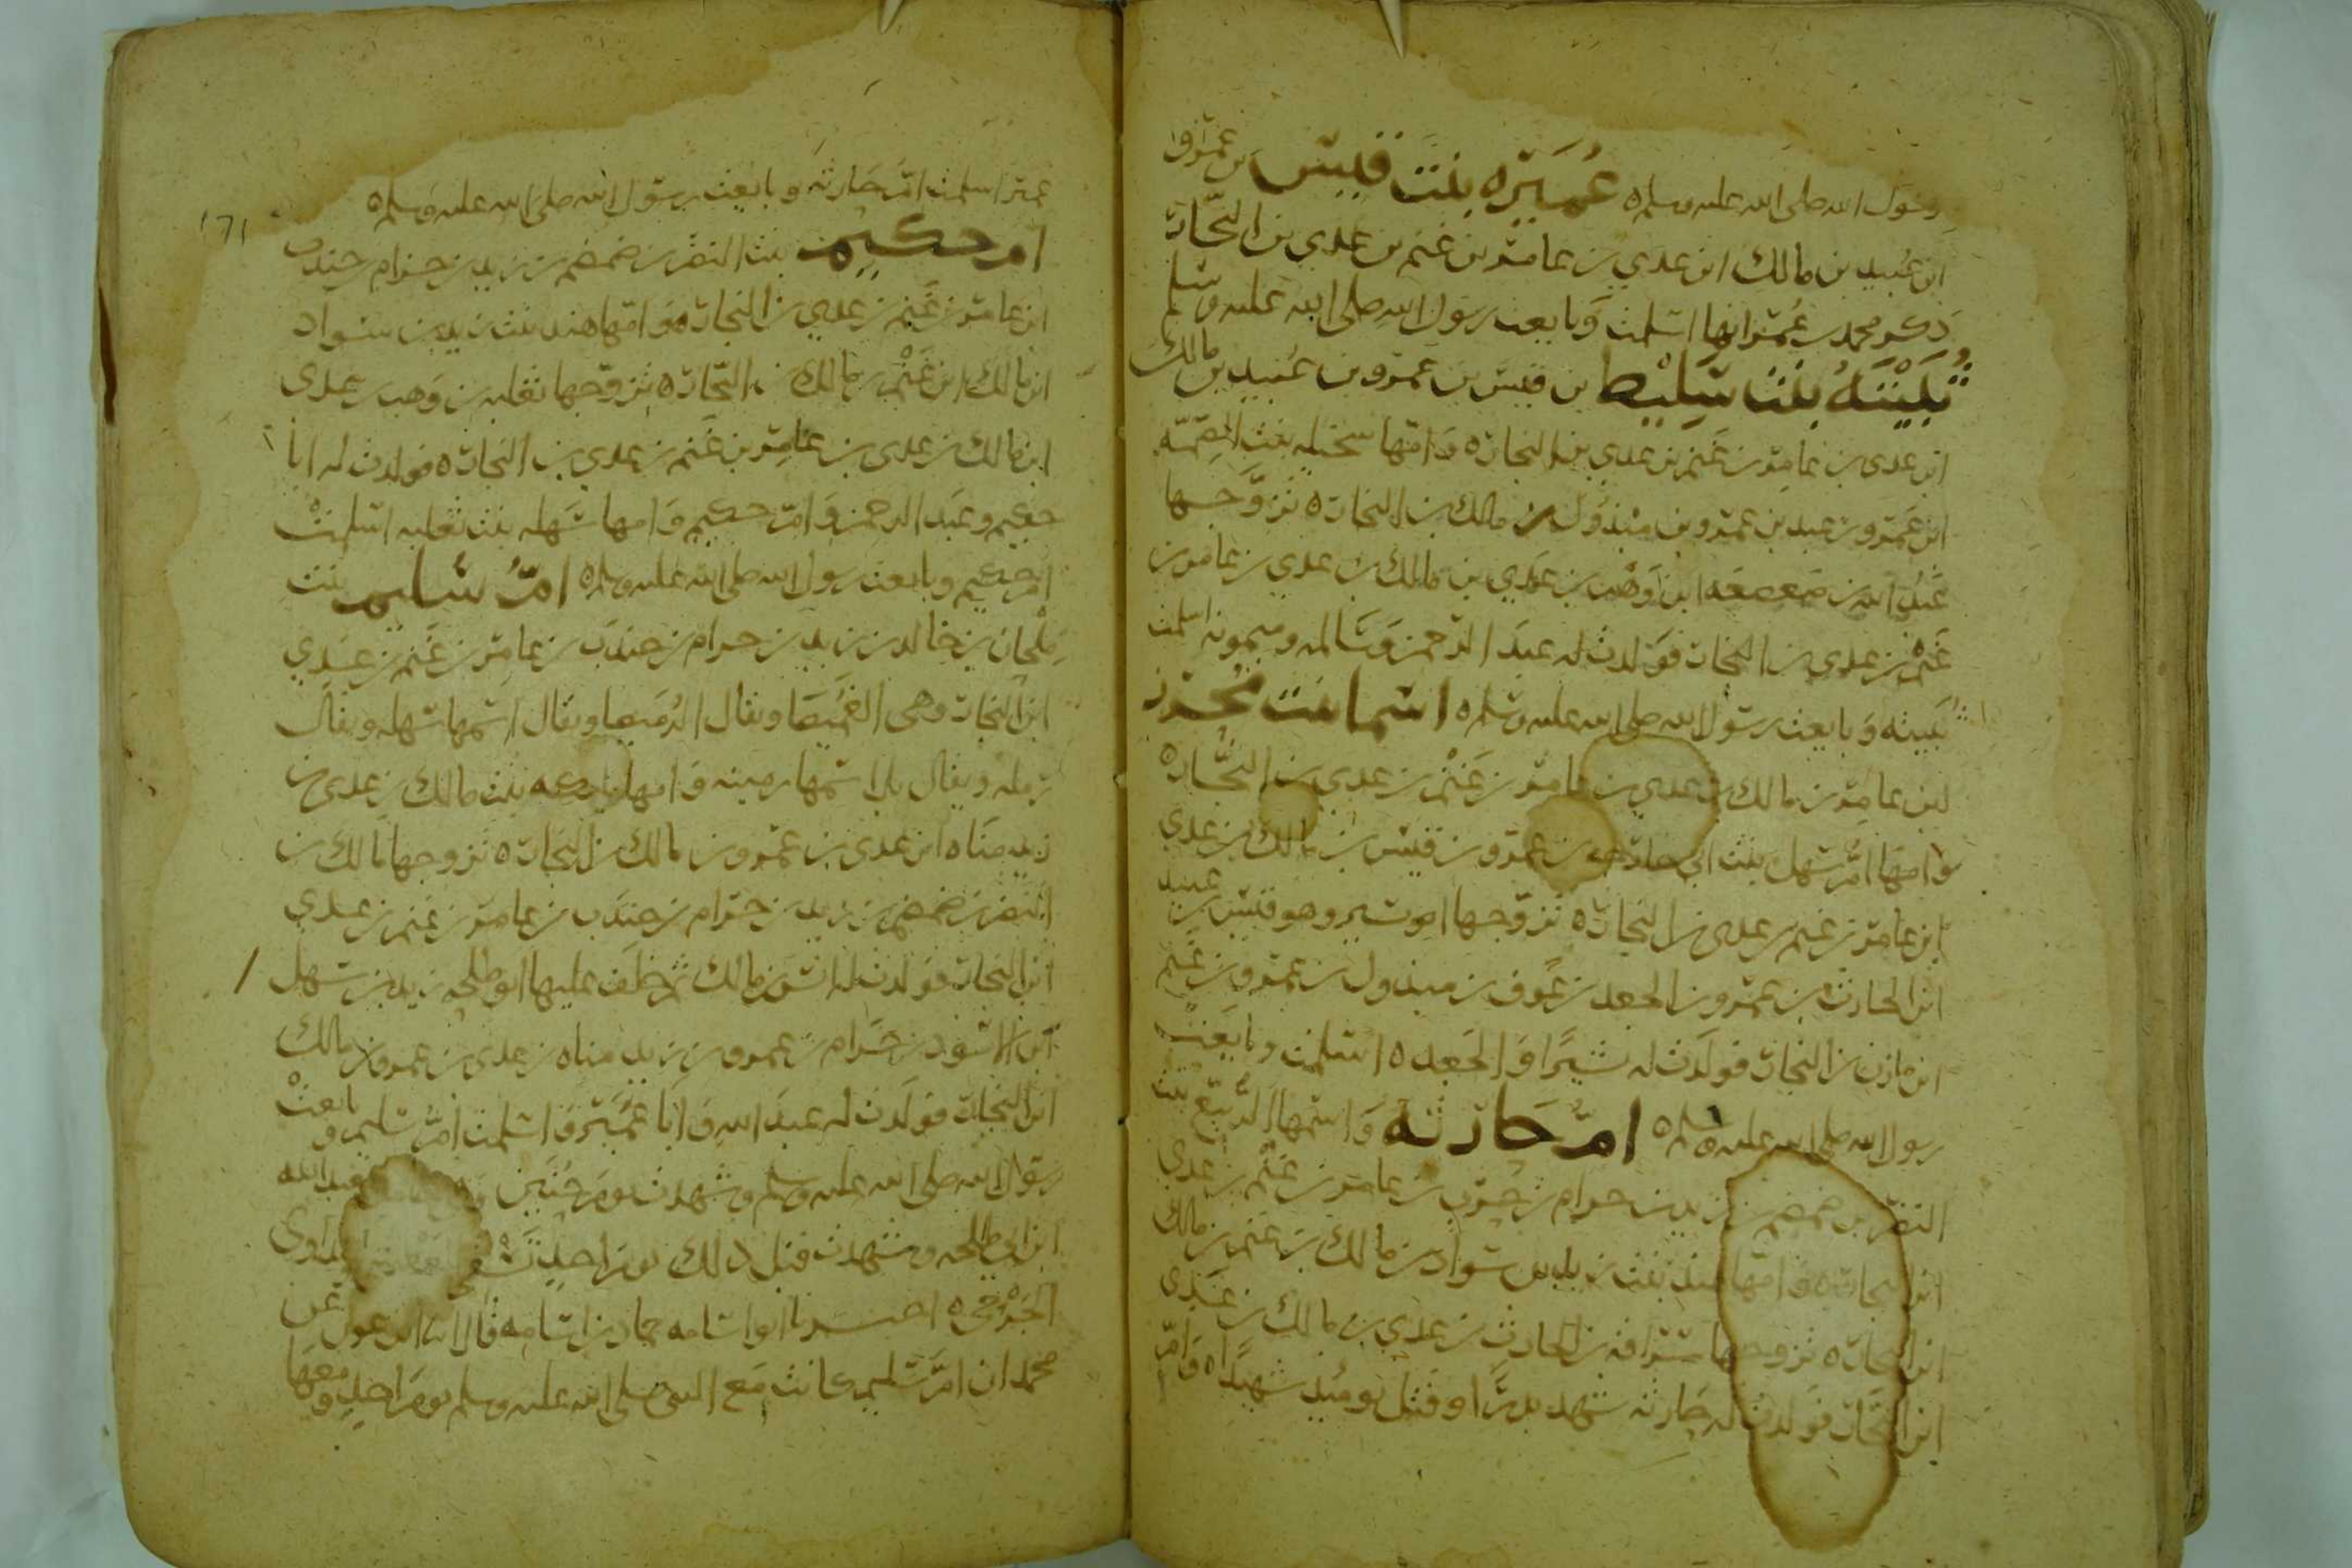 رسول الله صلى الله عليه وسلم ه عُمَيْرَه بنت قيس بن عمرو
ابن عبيد بن مالك ابن عدي بن عامر بن غنم بن عدي بن النجار
ذكر محمد بن عمر انها اسلمت وبايعت رسول الله صلى الله عليه وسلم
ثُبَيْتَهُ بنت سَلِيْط بن قيس بن عمرو بن عبيد بن مالك
ابن عدي بن عامر بن غنم بن عدي بن النجار ه وامها سخيله بنت الصمه
ابن عمرو بن عبيد بن عمرو بن مبذول بن مالك بن النجار ه تزوجها
عبد الله بن صعصعه ابن وهب بن عدي بن مالك بن عدي بن عامر بن
غنم بن عدي بن النجار فولدت له عبد الرحمن وسالمه وميمونه اسلمت
ثبيته وبايعت رسول الله صلى الله عليه وسلم ه اسما بنت مُحَرِّز
ابن عامر بن مالك بن عدي بن عامر بن غنم بن عدي بن النجار ه
وامها ام سهل بنت ابي خارجه بن عمرو بن قيس بن مالك بن عدي
ابن عامر بن غنم بن عدي بن النجار ه تزوجها ابو بشير وهو قيس بن عبيد
ابن الحارث بن عمرو بن الجعد بن عوف بن مبذول بن عمرو بن غنم
ابن مازن بن النجار فولدت له بشيرا والجعد ه اسلمت وبايعت
رسول الله صلى الله عليه وسلم ه امُّ حَارثه واسمها الرُّبَيِّع بنت
النضر بن ضمضم بن زيد بن حرام بن جندب بن عامر بن غنم بن عدي
ابن النجار ه وامها هند بنت زيد بن سواد بن مالك بن غنم بن مالك
ابن النجار ه تزوجها سراقه بن الحارث بن عدي بن مالك بن عدي
ابن النجار فولدت له حارثه شهد بدرا وقتل يومئذ شهيدا ه وام
عمير اسلمت ام حارثه وبايعت رسول الله صلى الله عليه وسلم ه
ام حكيم بنت النضر بن ضمضم بن زيد بن حرام جندب
ابن عامر بن غنم بن عدي بن النجار ه وامها هند بنت زيد بن سواد
ابن مالك ابن غنم بن مالك بن النجار ه تزوجها ثعلبه بن وهب بن عدي
ابن مالك بن عدي بن عامر بن غنم بن عدي بن النجار ه فولدت له ابا
حكيم وعبد الرحمن وام حكيم وامها سهله بنت ثعلبه اسلمت
ام حكيم وبايعت رسول الله صلى الله عليه وسلم ه امُّ سُليم بنت
مِلْحان بن خالد بن زيد بن حرام بن جندب بن عامر بن غنم بن عدي
ابن النجار وهي الغُمَيصا ويقال الرُمَيصا ويقال اسمها سهله ويقال
رمله ويقال بل اسمها رمينه وامها بنت مالك بن عدي بن
زيد مناه ابن عدي بن عمرو بن مالك بن النجار ه تزوجها مالك بن
النضر بن ضمضم بن زيد بن حرام بن جندب بن عامر بن غنم بن عدي
ابن النجار فولدت له انس بن مالك ثم خلف عليها ابو طلحه زيد بن سهل
ابن الاسود بن حَرَام بن عمرو بن زيد مناه بن عدي بن عمرو بن مالك
ابن النجار فولدت له عبد الله وابا عمير واسلمت ام سليم وبايعت
رسول الله صلى الله عليه وسلم وشهدت يوم حنين بعبد الله
ابن ابي طلحه وشهدت قبل ذلك يوم احد تسقي وتداوي
الجرحى ه اخبرنا ابو اسامه حماد بن اسامه قال انا ابن عون عن
محمد ان ام سليم كانت مع النبي صلى الله عليه وسلم يوم احد ومعها